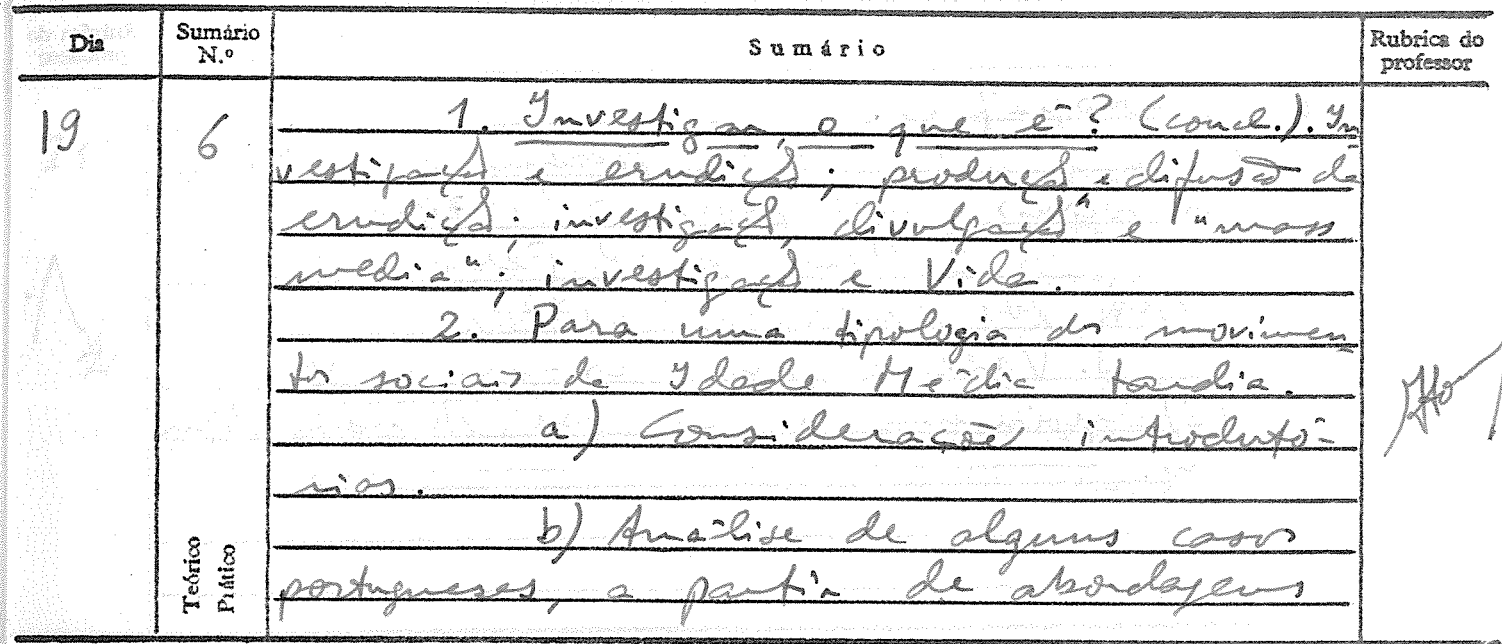 Dia Sumário N.º Sumário Rubrica do professor
19 6 1. Investigar, o que é? (concl.). In
vestigação e erudição; produção e difusão da
erudição; investigação, divulgação e "mass
media"; investigação e Vida.
2. Para uma tipologia dos movimen
tos sociais da Idade Média tardia.
a) Considerações introdutó-
rias.
b) Análise de alguns casos
portugueses, a partir de abordagens
Teórico
Prático